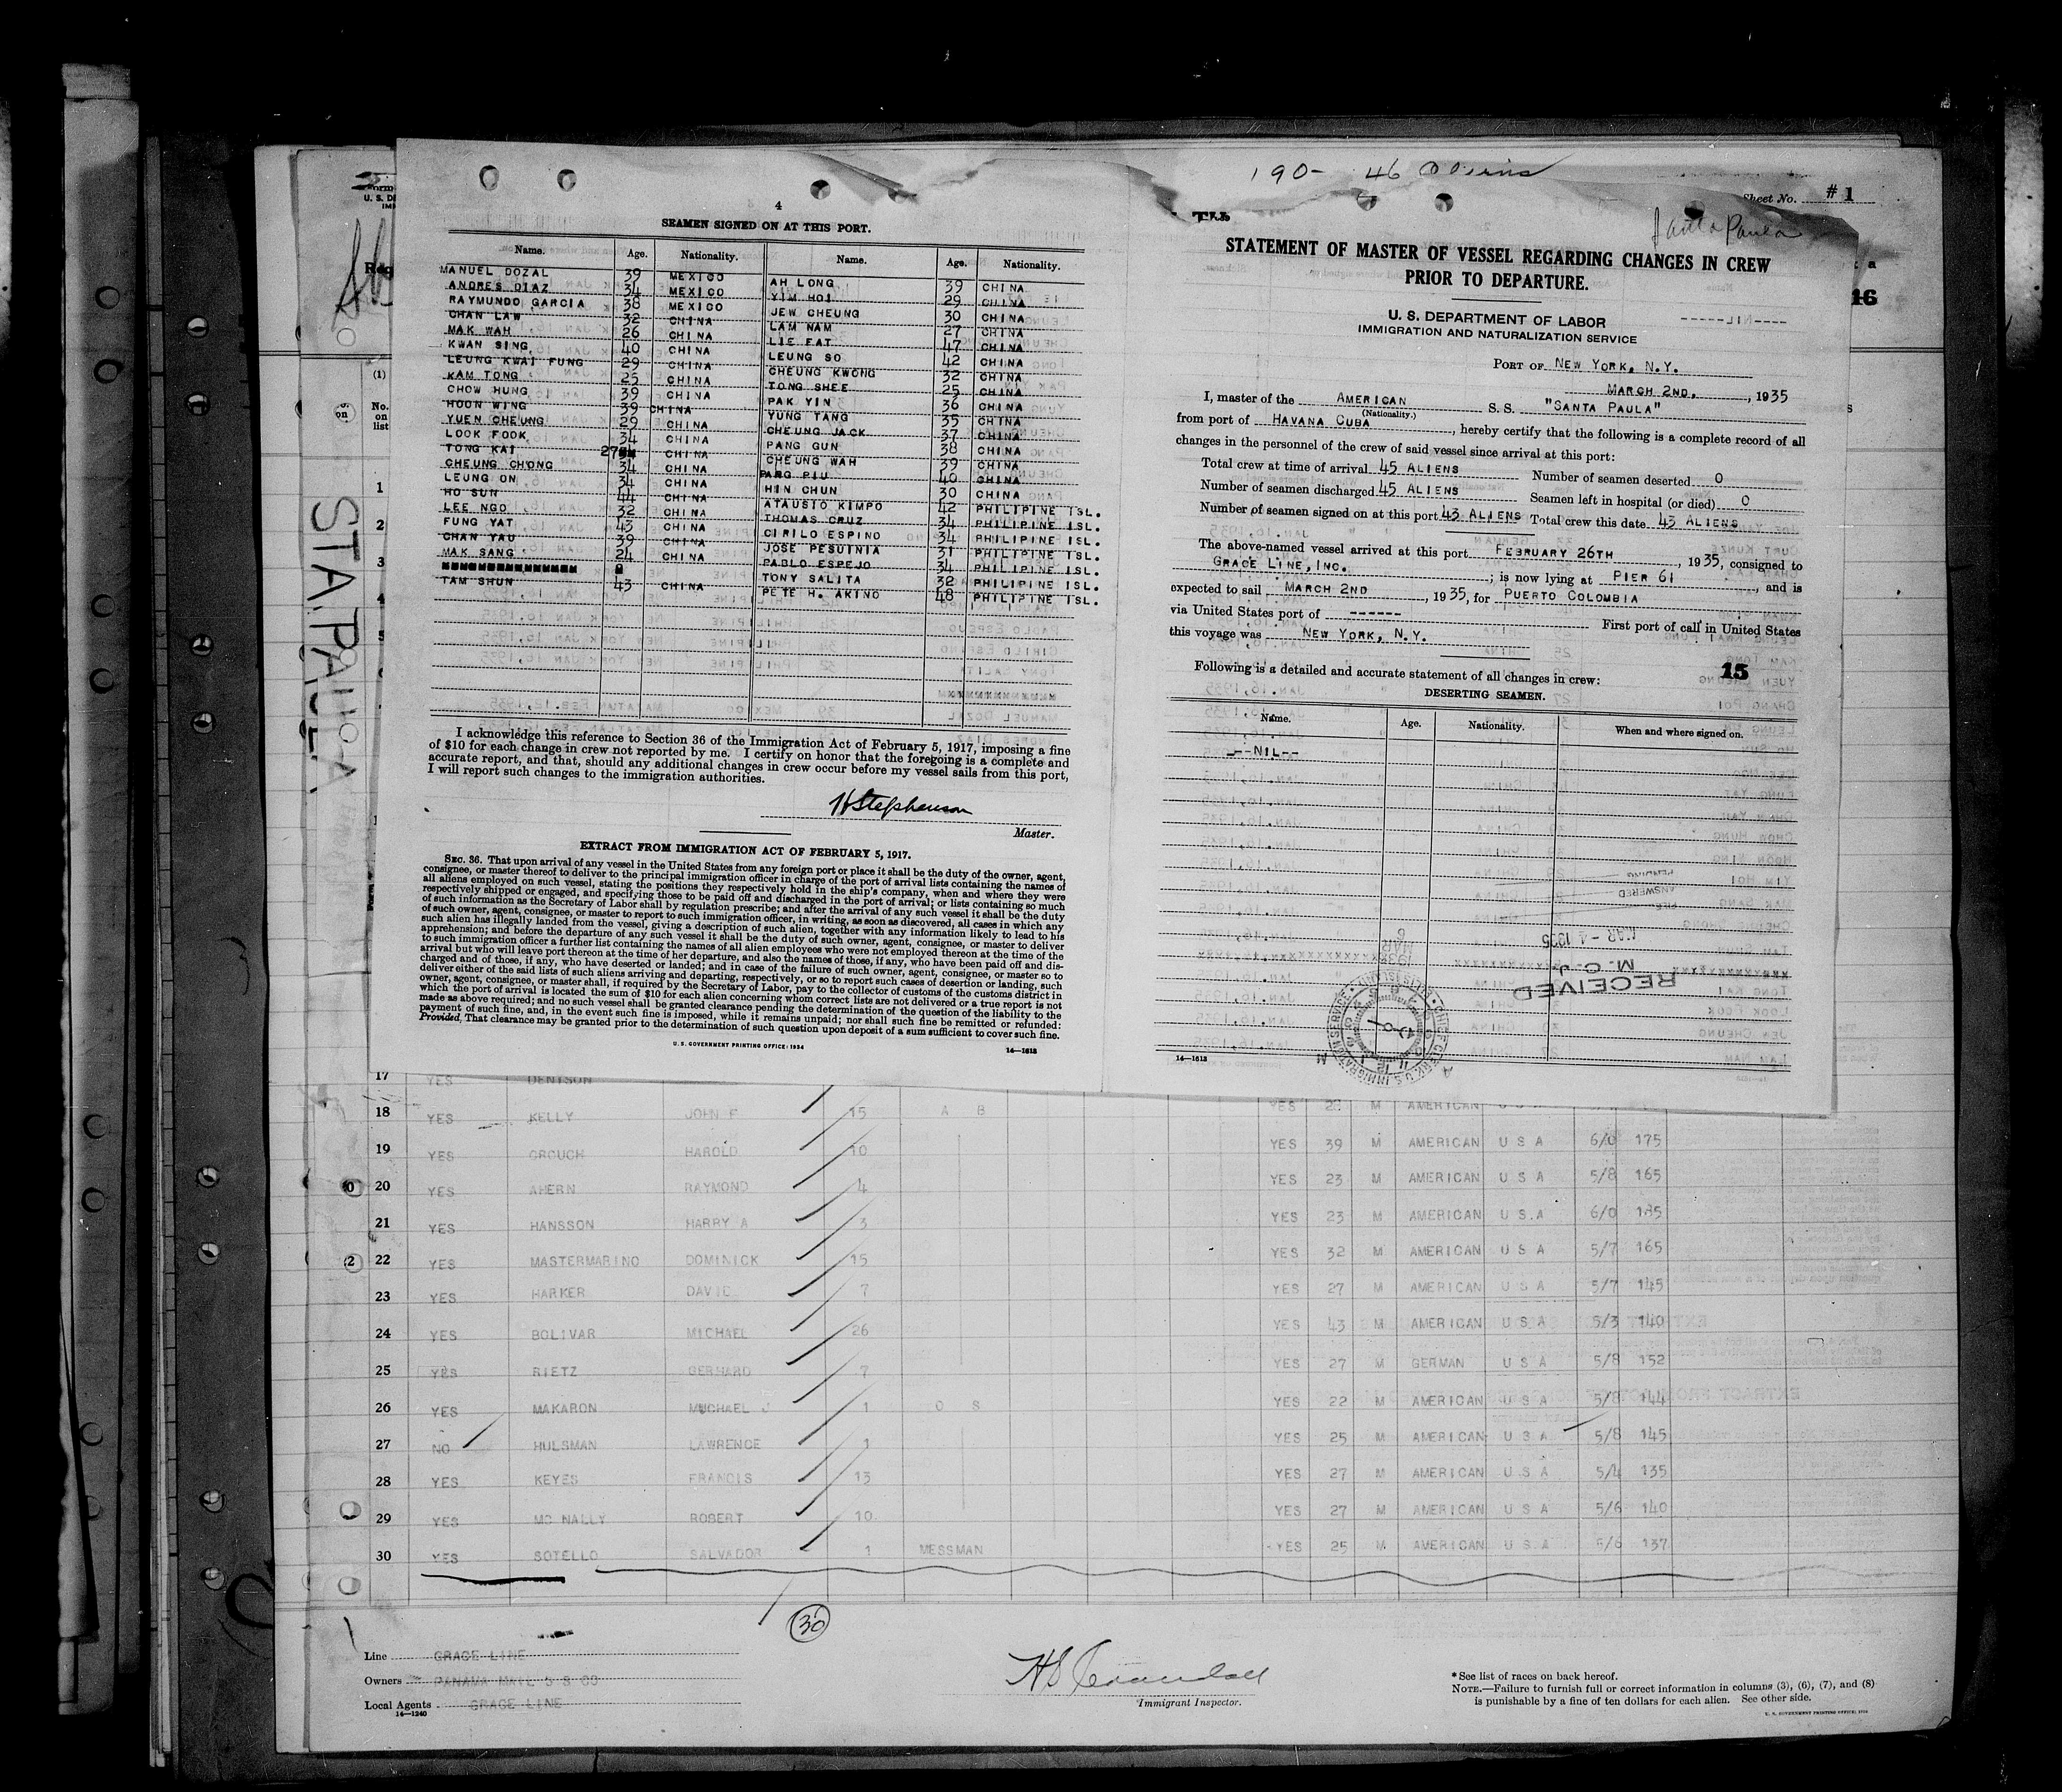 190- 46 Aliens
Sheet No. #1
Santa Paula
4
SEAMEN SIGNED ON AT THIS PORT.
Name. Age. Nationality. Name. Age. Nationality.
MANUEL DOZAL 39 MEXICO AH LONG 39 CHINA
ANDRES DIAZ 34 MEXICO YIM HOI 29 CHINA
RAYMUNDO GARCIA 38 MEXICO JEW CHEUNG 30 CHINA
CHAN LAW 32 CHINA LAM NAM 27 CHINA
MAK WAH 26 CHINA LIE FAT 47 CHINA
KWAN SING 40 CHINA LEUNG SO 42 CHINA
LEUNG KWAI FUNG 29 CHINA CHEUNG KWONG 32 CHINA
KAM TONG 25 CHINA TONG SHEE 25 CHINA
CHOW HUNG 39 CHINA PAK YIN 36 CHINA
HOON WING 39 CHINA YUNG TANG 35 CHINA
YUEN CHEUNG 29 CHINA CHEUNG JACK 37 CHINA
LOOK FOOK 34 CHINA PANG GUN 38 CHINA
TONG KAI 27 CHINA CHEUNG WAH 39 CHINA
CHEUNG CHONG 34 CHINA PANG PIU 40 CHINA
LEUNG ON 34 CHINA HIN CHUN 30 CHINA
HO SUN 44 CHINA ATAUSIO KIMPO 42 PHILIPINE ISL.
LEE NGO 32 CHINA THOMAS CRUZ 34 PHILIPINE ISL.
FUNG YAT 43 CHINA CIRILO ESPINO 34 PHILIPINE ISL.
CHAN YAU 39 CHINA JOSE PESUINIA 31 PHILIPINE ISL.
MAK SANG 24 CHINA PABLO ESPEJO 34 PHILIPINE ISL.
TONY SALITA 32 PHILIPINE ISL.
TAM SHUN 43 CHINA PETE H. AKINO 48 PHILIPINE ISL.
I acknowledge this reference to Section 36 of the Immigration Act of February 5, 1917, imposing a fine
of $10 for each change in crew not reported by me. I certify on honor that the foregoing is a complete and
accurate report, and that, should any additional changes in crew occur before my vessel sails from this port,
I will report such changes to the immigration authorities.
H Stephenson
Master.
EXTRACT FROM IMMIGRATION ACT OF FEBRUARY 5, 1917.
SEC. 36. That upon arrival of any vessel in the United States from any foreign port or place it shall be the duty of the owner, agent,
consignee, or master thereof to deliver to the principal immigration officer in charge of the port of arrival lists containing the names of
all aliens employed on such vessel, stating the positions they respectively hold in the ship's company, when and where they were
respectively shipped or engaged, and specifying those to be paid off and discharged in the port of arrival; or lists containing so much
of such information as the Secretary of Labor shall by regulation prescribe; and after the arrival of any such vessel it shall be the duty
of such owner, agent, consignee, or master to report to such immigration officer, in writing, as soon as discovered, all cases in which any
such alien has illegally landed from the vessel, giving a description of such alien, together with any information likely to lead to his
apprehension; and before the departure of any such vessel it shall be the duty of such owner, agent, consignee, or master to deliver
to such immigration officer a further list containing the names of all alien employees who were not employed thereon at the time of the
arrival but who will leave port thereon at the time of her departure, and also the names of those, if any, who have been paid off and dis-
charged and of those, if any, who have deserted or landed; and in case of the failure of such owner, agent, consignee, or master so to
deliver either of the said lists of such aliens arriving and departing, respectively, or so to report such cases of desertion or landing, such
owner, agent, consignee, or master shall, if required by the Secretary of Labor, pay to the collector of customs of the customs district in
which the port of arrival is located the sum of $10 for each alien concerning whom correct lists are not delivered or a true report is not
made as above required; and no such vessel shall be granted clearance pending the determination of the question of the liability to the
payment of such fine, and, in the event such fine is imposed, while it remains unpaid; nor shall such fine be remitted or refunded:
Provided, That clearance may be granted prior to the determination of such question upon deposit of a sum sufficient to cover such fine.
U. S. GOVERNMENT PRINTING OFFICE: 1934
14—1613
STATEMENT OF MASTER OF VESSEL REGARDING CHANGES IN CREW
PRIOR TO DEPARTURE.
U. S. DEPARTMENT OF LABOR
IMMIGRATION AND NATURALIZATION SERVICE
PORT OF NEW YORK, N.Y.
MARCH 2ND, , 1935
I, master of the AMERICAN S. S. "SANTA PAULA"
(Nationality.)
from port of HAVANA CUBA, hereby certify that the following is a complete record of all
changes in the personnel of the crew of said vessel since arrival at this port:
Total crew at time of arrival 45 ALIENS Number of seamen deserted 0
Number of seamen discharged 45 ALIENS Seamen left in hospital (or died) 0
Number of seamen signed on at this port 43 ALIENS Total crew this date 43 ALIENS
The above-named vessel arrived at this port FEBRUARY 26TH, 1935, consigned to
GRACE LINE, INC. ; is now lying at PIER 61, and is
expected to sail MARCH 2ND, 1935, for PUERTO COLOMBIA
via United States port of ------ First port of call in United States
this voyage was NEW YORK, N.Y.
Following is a detailed and accurate statement of all changes in crew:
15
DESERTING SEAMEN.
Name. Age. Nationality. When and where signed on.
--NIL--
RECEIVED
M. C. J.
MAR - 4 1935
14—1613
16
STA. PAULA
No.
on
list
17 YES DENISON
18 YES KELLY JOHN F 15 A B YES 28 M AMERICAN U S A
19 YES CROUCH HAROLD 10 YES 39 M AMERICAN U S A 6/0 175
20 YES AHERN RAYMOND 4 YES 23 M AMERICAN U S A 5/8 165
21 YES HANSSON HARRY A 3 YES 23 M AMERICAN U S A 6/0 185
22 YES MASTERMARINO DOMINICK 15 YES 32 M AMERICAN U S A 5/7 165
23 YES HARKER DAVID 7 YES 27 M AMERICAN U S A 5/7 145
24 YES BOLIVAR MICHAEL 26 YES 43 M AMERICAN U S A 5/3 140
25 YES RIETZ GERHARD 7 YES 27 M GERMAN U S A 5/8 152
26 YES MAKARON MICHAEL J 1 O S YES 22 M AMERICAN U S A 5/8 144
27 NO HULSMAN LAWRENCE 1 YES 25 M AMERICAN U S A 5/8 145
28 YES KEYES FRANCIS 13 YES 27 M AMERICAN U S A 5/4 135
29 YES MC NALLY ROBERT 10 YES 27 M AMERICAN U S A 5/6 140
30 YES SOTELLO SALVADOR 1 MESSMAN YES 25 M AMERICAN U S A 5/6 137
30
Line GRACE LINE
Owners PANAMA MAIL S S CO
Local Agents GRACE LINE
14—1240
Immigrant Inspector.
*See list of races on back hereof.
NOTE.—Failure to furnish full or correct information in columns (3), (6), (7), and (8)
is punishable by a fine of ten dollars for each alien. See other side.
U. S. GOVERNMENT PRINTING OFFICE: 1934